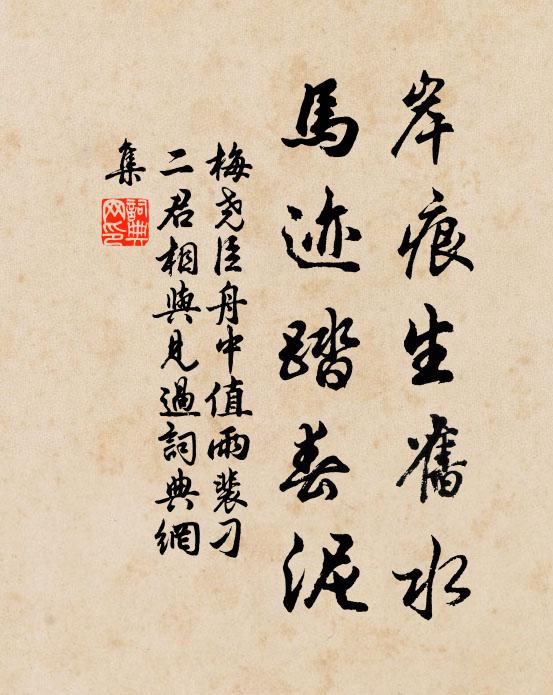 岸痕生舊水
馬迹踏春泥
梅尭臣舟中值雨裴刁
二君相與見過詞典網
集
詞典
网印